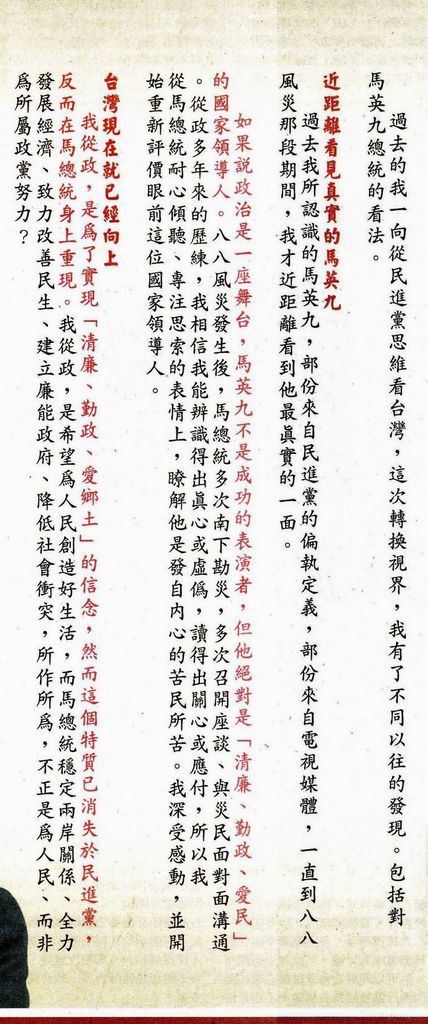 過去的我一向從民進黨思維看台灣，這次轉換視界，我有了不同以往的發現。包括對
馬英九總統的看法。
近距離看見真實的馬英九
過去我所認識的馬英九，部份來自民進黨的偏執定義，部份來自電視媒體，一直到八八
風災那段期間，我才近距離看到他最真實的一面。
如果說政治是一座舞台，馬英九不是成功的表演者，但他絕對是「清廉、勤政、愛民」
的國家領導人。八八風災發生後，馬總統多次南下勘災，多次召開座談、與災民面對面溝通
。從政多年來的歷練，我相信我能辨識得出真心或虛偽，讀得出關心或應付，所以我
從馬總統耐心傾聽、專注思索的表情上，瞭解他是發自內心的苦民所苦。我深受感動，並開
始重新評價眼前這位國家領導人。
台灣現在就已經向上
我從政，是為了實現「清廉、勤政、愛鄉土」的信念，然而這個特質已消失於民進黨，
反而在馬總統身上重現。我從政，是希望為人民創造好生活，而馬總統穩定兩岸關係、全力
發展經濟、致力改善民生、建立廉能政府、降低社會衝突，所作所為，不正是為人民、而非
為所屬政黨努力？